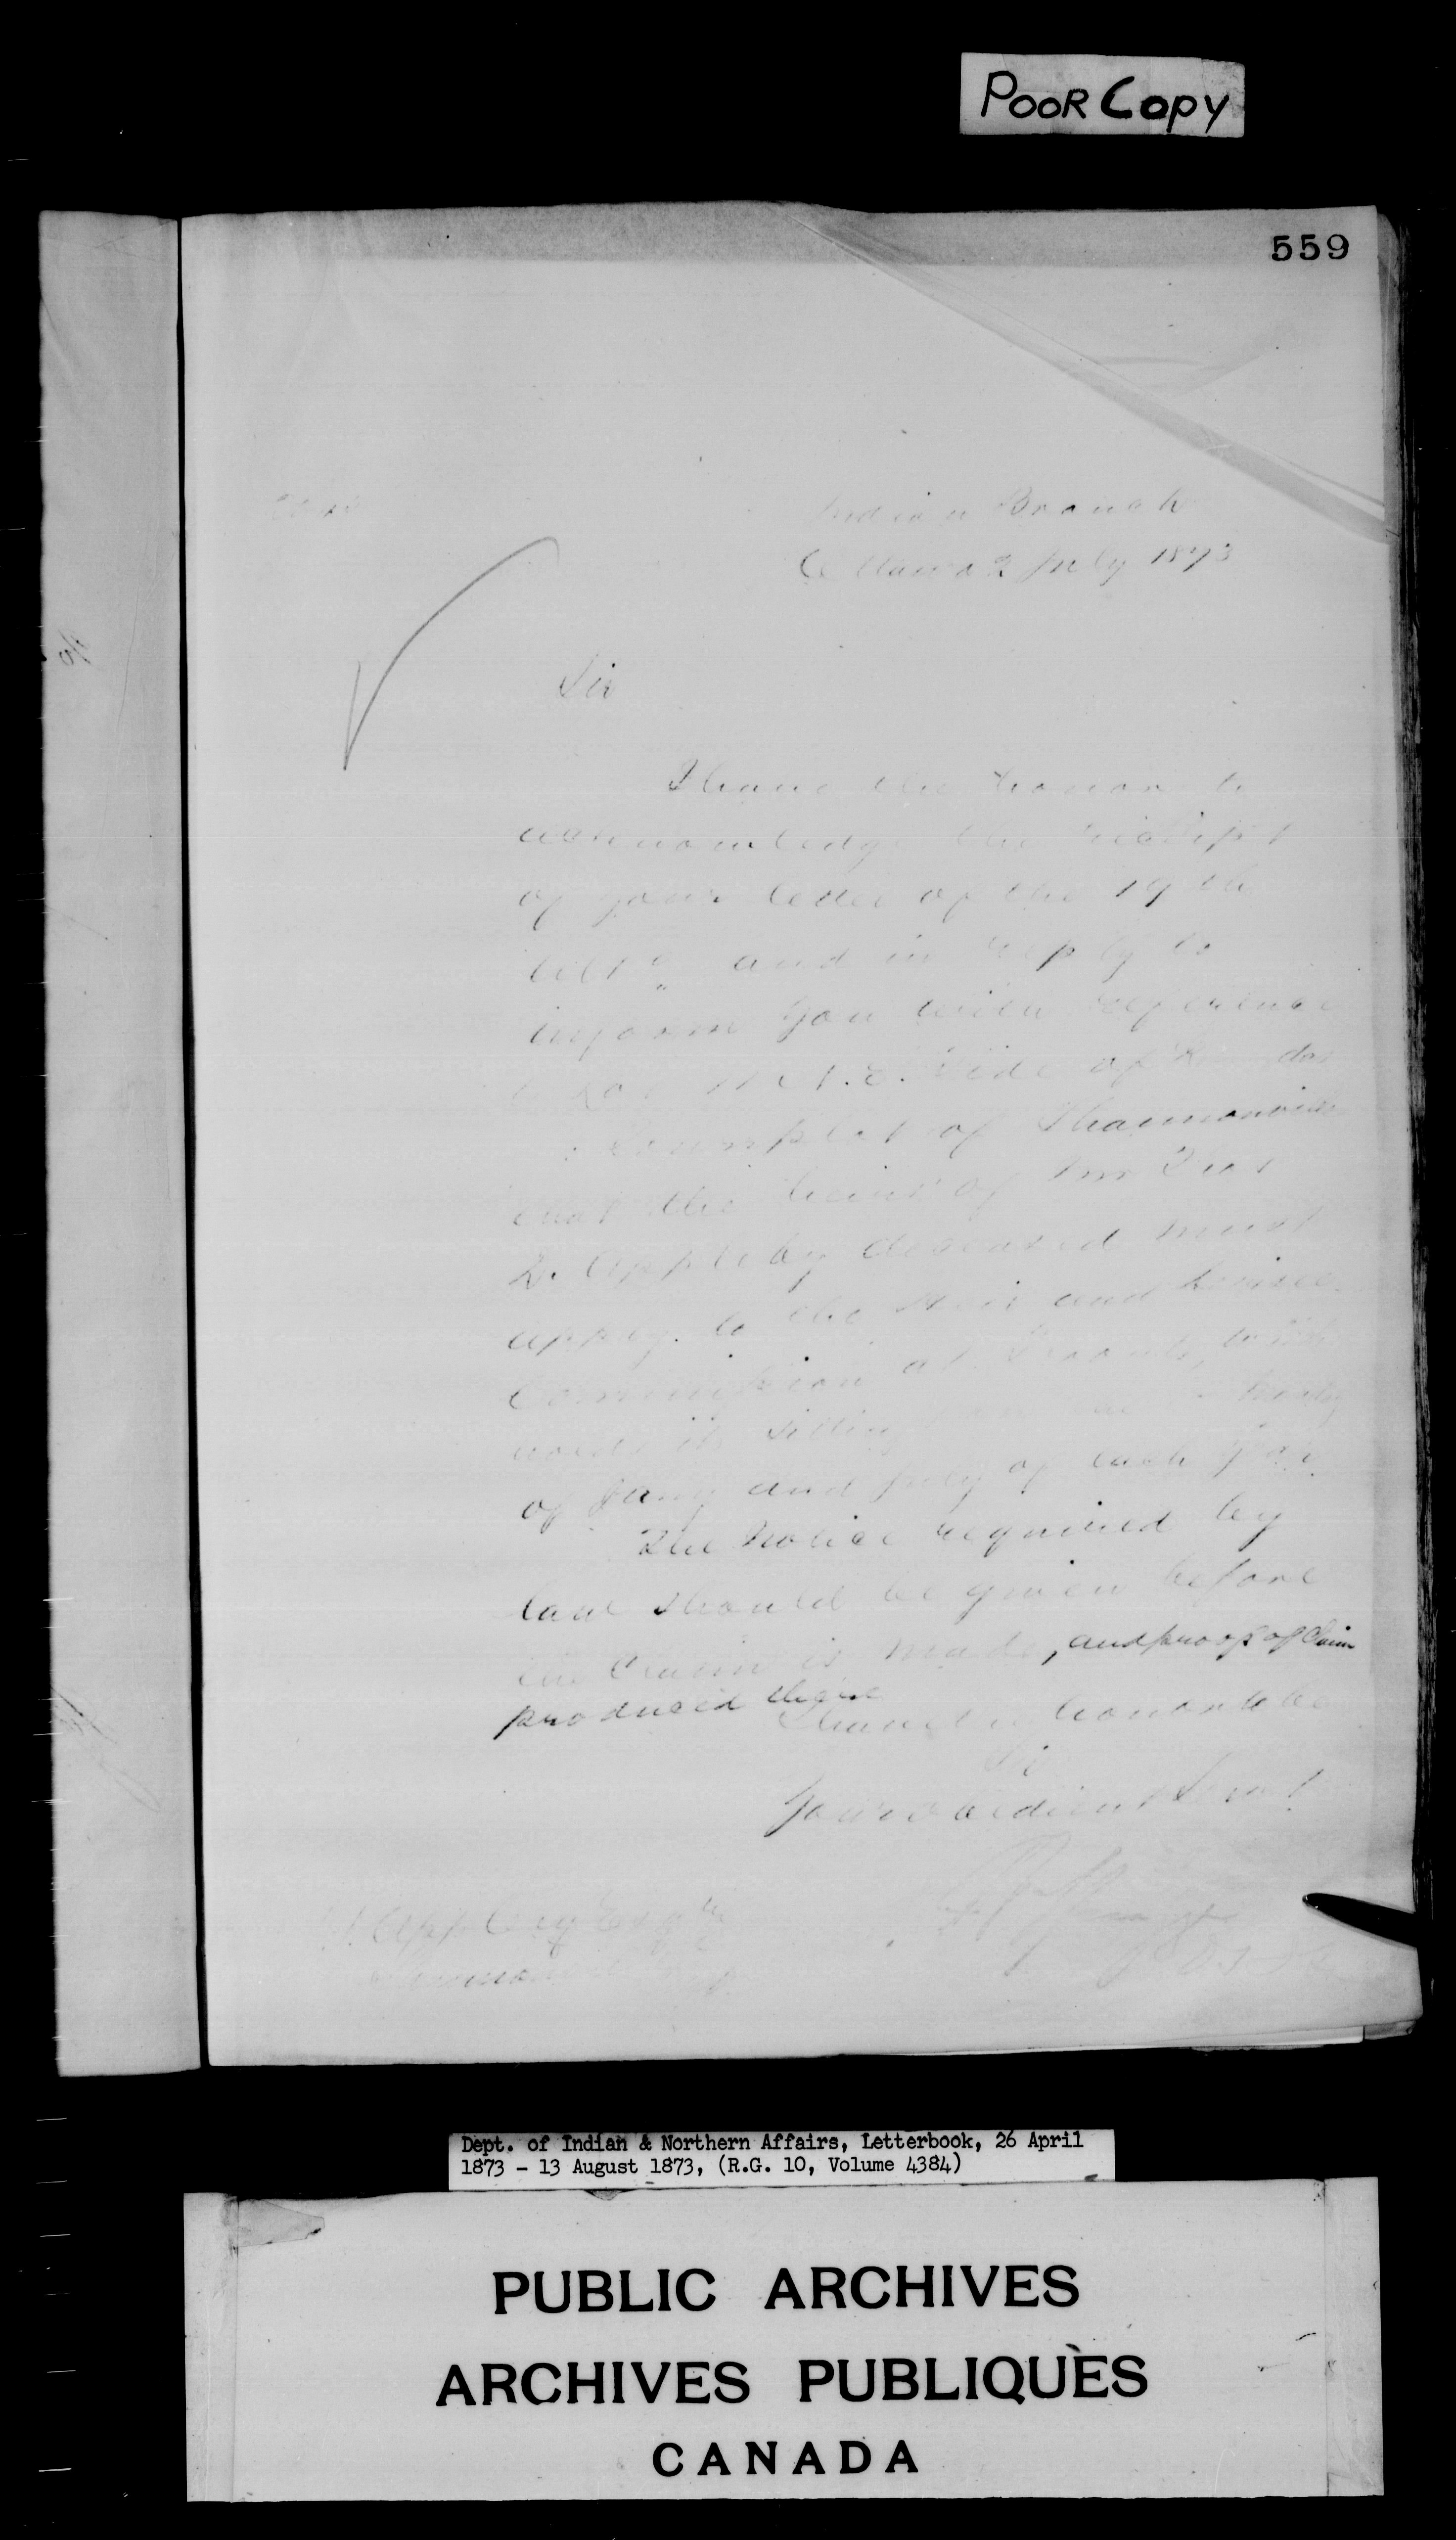 POOR Copy
559
Indian Branch
Ottawa 2 July 1873
Sir
I have the honor to
acknowledge the receipt
of your letter of the 19th
ult° and in reply to
inform you with reference
Lot 11 N.E. Side of
Town plot of Shannonville
that the heirs of Mr Thos
D. Appleby deceased must
apply to the Heir and Devisee
Commission at Toronto, which
holds its sittings
of Jany and July of each year.
The Notice required by
law should be given before
the Claim is made, and proof of Claim
produced there
I have the honor to be
Sir
Your obedient Servt
Appleby Esqre
Dept. of Indian & Northern Affairs, Letterbook, 26 April
1873 - 13 August 1873, (R.G. 10, Volume 4384)
PUBLIC ARCHIVES
ARCHIVES PUBLIQUES
CANADA